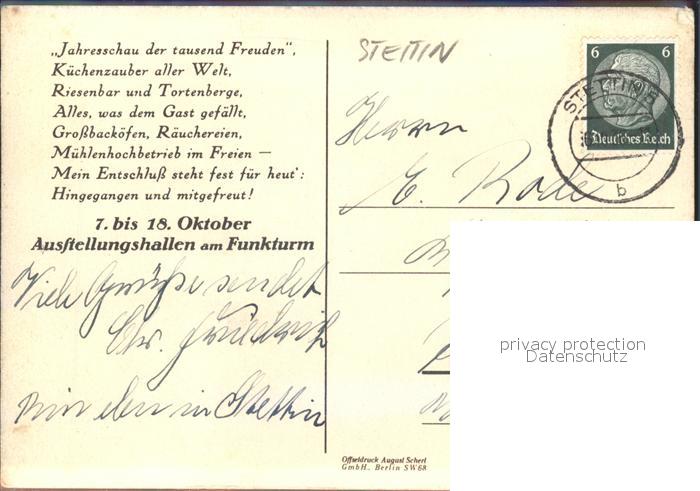 „Jahresschau der tausend Freuden“,
Küchenzauber aller Welt,
Riesenbar und Tortenberge,
Alles, was dem Gast gefällt,
Großbacköfen, Räuchereien,
Mühlenhochbetrieb im Freien —
Mein Entschluß steht fest für heut’:
Hingegangen und mitgefreut!
7. bis 18. Oktober
Ausstellungshallen am Funkturm
Viele Grüße sendet
Chr. Friedrich
nun eben in Stettin
STETTIN
6 6
Deutsches Reich
STETTIN
b
Herrn
E. Rode
privacy protection
Datenschutz
Offsetdruck August Scherl
GmbH. Berlin SW 68